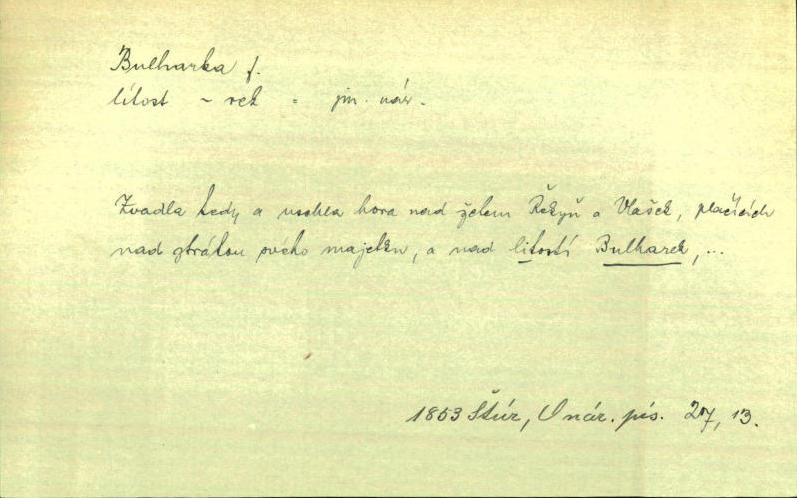 Bulharka f.
lítost ~ rek = jm. nár.
Zvadla tedy a uschla hora nad želem Řekyň a Vlašek, plačících
nad ztrátou svého majetku, a nad lítostí Bulharek, ...
1853 Štúr, O nár. pís. 27, 13.